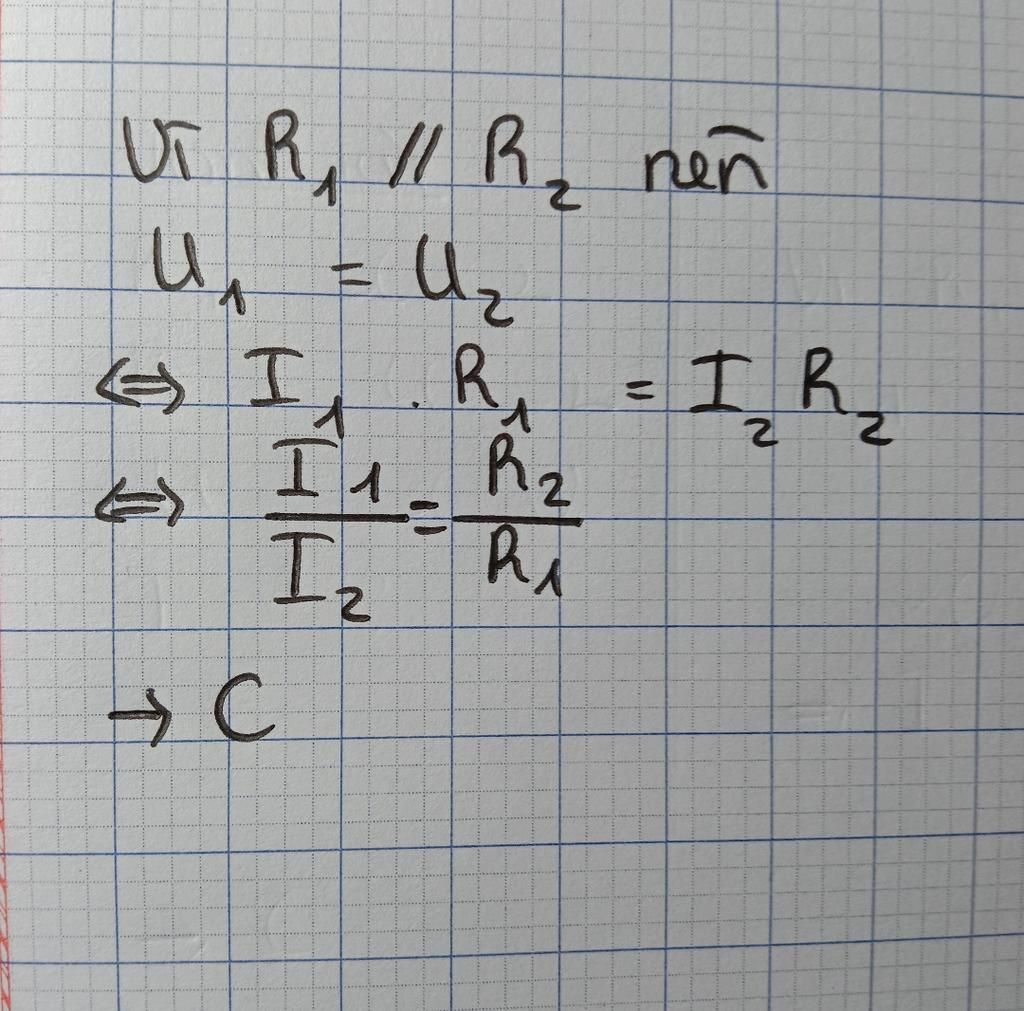 Vì R₁ // R₂ nên
U₁ = U₂
⇔ I₁ . R₁ = I₂ R₂
⇔ I₁/I₂ = R₂/R₁
→ C